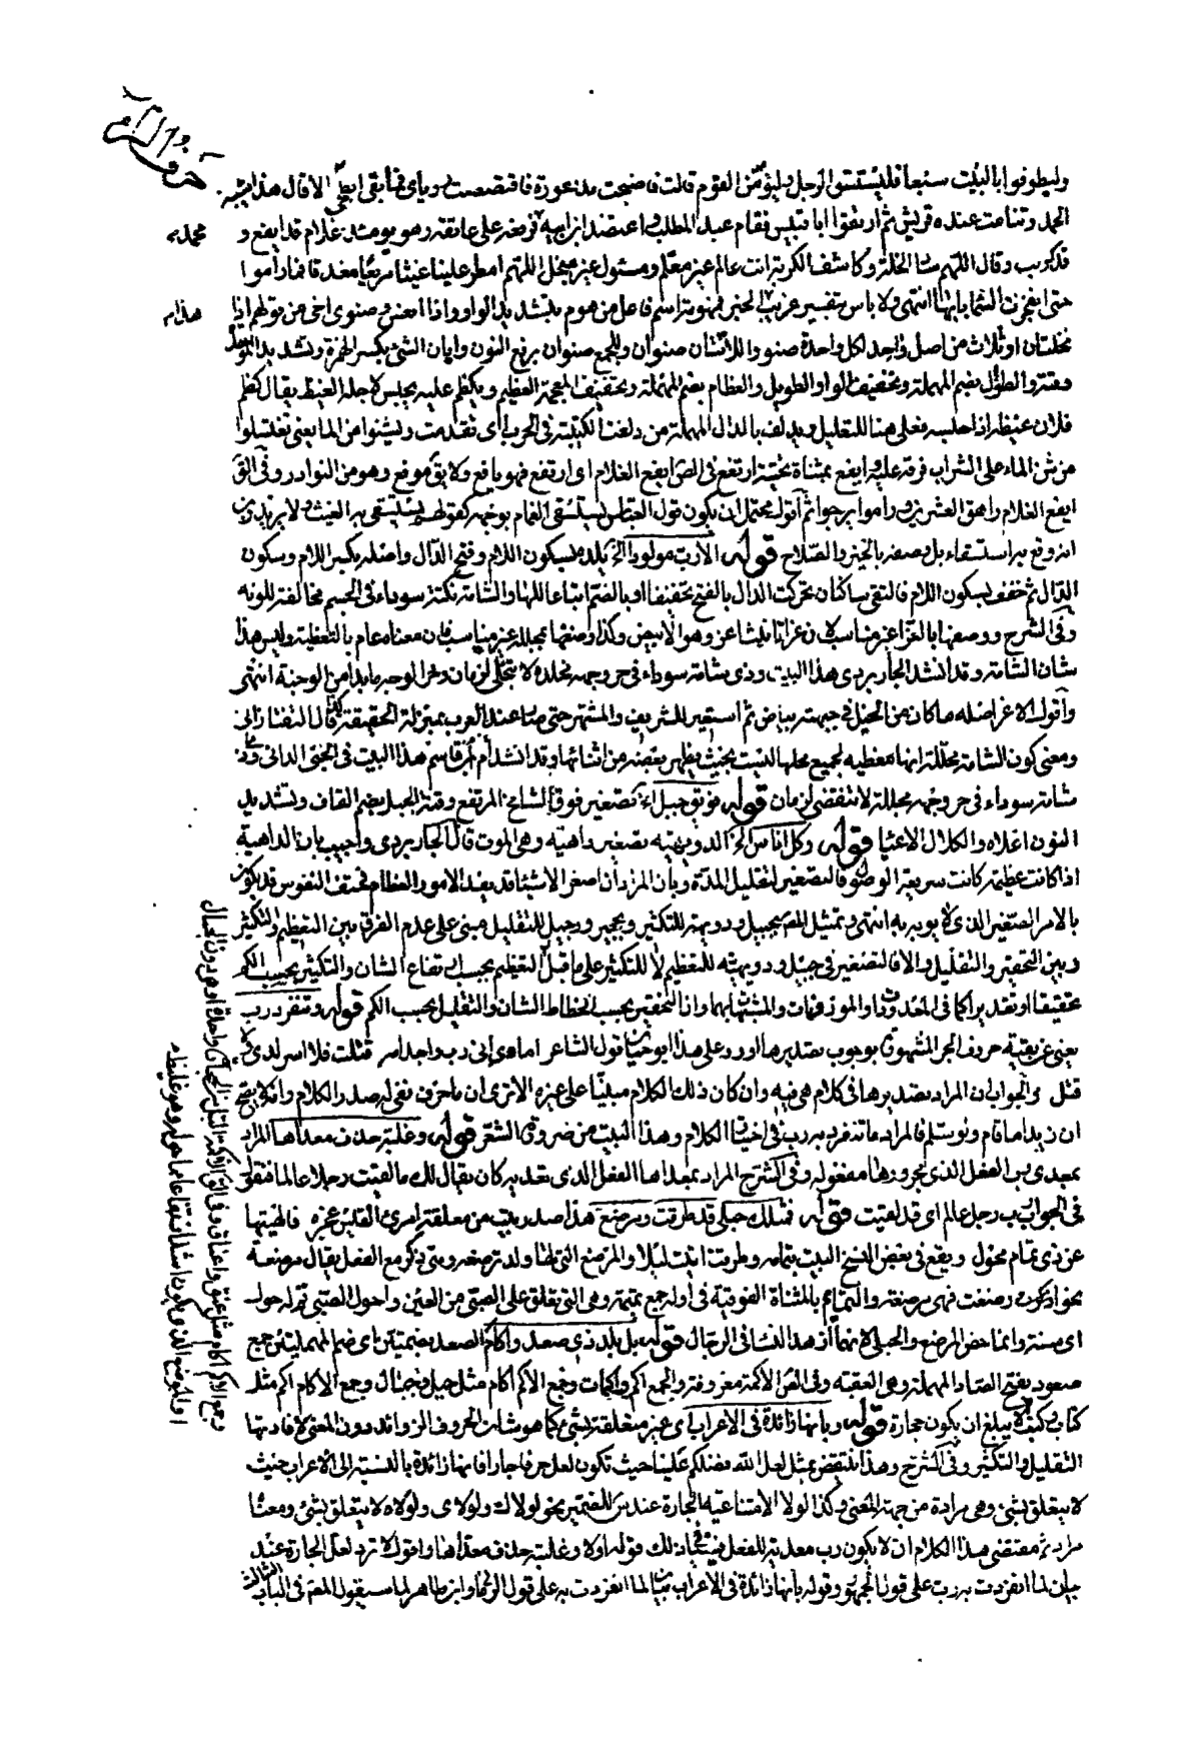 حرف الراء
وليطوفوا بالبيت سبعا فليستسق الرجل وليؤمن القوم قالت فاصبحت مذعورة فاقتصصت رؤياى فما بقى ابطحى الا قال هذا شيبة
الحمد وتتامت عنده قريش ثم ارتقوا ابا قبيس فقام عبد المطلب واعتضد ابن ابنه فرفعه على عاتقه وهو يومئذ غلام قد ايفع و
محمد
قد كرب وقال اللهم ساد الخلة وكاشف الكربة انت عالم غير معلم ومسئول غير مبخل اللهم امطر علينا غيثا مريعا مغدقا فما راموا
حتى انفجرت السماء بمائها انتهى ولا باس بتفسير غريب الخبر فمهوم اسم فاعل من هوم بتشديد الواو اذا نعس وصنوى اخى من قولهم اذا
نخلتان او ثلاث من اصل واحد لكل واحدة صنو وللاثنتان صنوان وللجمع صنوان برفع النون وابان الشئ بكسر الهمزة وتشديد الموحدة
وقته والطوال بضم المهملة وتخفيف الواو الطويل والعظام بضم المهملة وتخفيف المعجمة العظيم ويكظم عليه يحبس لاجله الغيظ يقال كظم
فلان غيظه اذا حبسه فعلى هنا للتعليل ويدلف بالدال المهملة من دلفت الكتيبة فى الحرب اى تقدمت وليشنوا من الماء يعنى تغتسلوا
من شن الماء على الشراب فرقه عليه وايفع بمثناة تحتية ارتفع فى الص ايفع الغلام اى ارتفع فهو يافع ولا يق موفع وهو من النوادر وفى الق
ايفع الغلام راهق العشرين وراموا برحوا ثم اقول محتمل ان يكون قول العباس يستسقى الغمام بوجهه كقولهم يستسقى به الغيث ولا يريدون
انه وقع به استسقاء بل وصفه بالخير والصلاح قوله الا رب مولود الخ يلده بسكون اللام وفتح الدال واصله بكسر اللام وسكون
الدال ثم خفف بسكون اللام فالتقى ساكنان فحركت الدال بالفتح تخفيفا او بالضم اتباعا للهاء والشامة نكتة سوداء فى الجسم مخالفة للونه
وفى الشرح ووصفها بالغراء غير مناسب لان غراء تانيث اغر وهو الابيض وكذا وصفها بمجللة غير مناسب فان معناه عام بالتغطية وليس هذا
شان الشامة وقد انشد الجاربردى هذا البيت وذى شامة سوداء فى حر وجهه مخلدة لا تنجلى لزمان وحر الوجه ما بدا من الوجنة انتهى
واقول الاغر اصله ما كان من الخيل فى جبهته بياض ثم استعير للشريف والمشتهر حتى صار عند العرب بمنزلة الحقيقة كذا قال التفتازانى
ومعنى كون الشامة مجللة انها مغطيه لجميع محلها ليست بحيث يظهر بعضه من اثنائها وقد انشد ابن ام قاسم هذا البيت فى الجنى الدانى وذى
شامة سوداء فى حر وجهه مجللة لا تنقضى لزمان قوله فويق جبيل الخ تصغير فوق والشامخ المرتفع وقنة الجبل بضم القاف وتشديد
النون اعلاه والكلال الاعياء قوله وكل اناس الخ الدويهية تصغير داهية وهى الموت قال الجاربردى واجيب بان الداهية
اذا كانت عظيمة كانت سريعة الوصول فالتصغير لتقليل المدة وبان المراد ان اصغر الاشياء قد يفسد الامور العظام فحتف النفوس قد يكون
بالامر الصغير الذى لا يوبه به انتهى وتمثيل المص بجبيل ودويهية للتكثير وبحجير ورجيل للتقليل مبنى على عدم الفرق بين التعظيم والتكثير
وبين التحقير والتقليل والا فالتصغير فى جبيل ودويهية للتعظيم لا للتكثير على ما قيل التعظيم بحسب ارتفاع الشان والتكثير بحسب الكم
تحقيقا او تقديرا كما فى المعدودات والموزونات والمشبهات بهما وان التحقير بحسب انحطاط الشان والتقليل بحسب الكم قوله وتنفرد رب
يعنى عن بقية حروف الجر المشهورة بوجوب تصديرها اورد على هذا ابو حيان قول الشاعر اماوى انى رب واحد امه قتلت فلا اسر لدى ولا
قتل والجواب ان المراد تصديرها فى كلام هى فيه وان كان ذلك الكلام مبنيا على غيره الا ترى ان ما حرف نفى له صدر الكلام
ان زيدا ما قام ولو سلم فالمراد ما تنفرد به رب فى اختيار الكلام وهذا البيت من ضرورة الشعر قوله وغلبة حذف معداها المراد
بمعدى رب الفعل الذى مجرورها مفعوله وفى الشرح المراد بمعداها الفعل الذى تعديه كان يقال لك ما لقيت رجلا عالما فتقول
فى الجواب رب رجل عالم اى قد لقيت قوله فمثلك حبلى قد طرقت ومرضع هذا صدر بيت من معلقة امرئ القيس عجزه فالهيتها
عن ذى تمائم محول ويقع فى بعض النسخ البيت بتمامه وطرقت اتيت ليلا والمرضع التى لها ولد ترضعه ومتى ذكر مع الفعل يقال مرضعة
والتمائم بالمثناة الفوقية فى اوله جمع تميمة وهى التى تعلق على الصبى من العين واحول الصبى تم له حول
اى سنة وانما خص المرضع والحبلى لانهما ازهد النساء فى الرجال قوله بل بلد ذى صعد واكام الصعد بضمتين اى بضم المهملتين جمع
صعود بفتح الصاد المهملة وهى العقبة وفى الص الاكمة معروفة والجمع اكم واكمات وجمع الاكم اكام مثل جبل وجبال وجمع الاكام اكم مثل
كتاب وكتب لا يبلغ ان يكون حجارة قوله وبانها زائدة فى الاعراب اى غير متعلقة بشئ كما هو شان الحروف الزوائد دون المعنى لافادتها
التقليل والتكثير وفى الشرح وهذا ينتقض بمثل لعل الله فضلكم علينا حيث تكون لعل حرفا جارا فانها زائدة بالنسبة الى الاعراب حيث
لا يتعلق بشئ وهى مرادة من جهة المعنى وكذا لولا الامتناعية الجارة عند س للضمير نحو لولاك ولولاى ولولاه لا يتعلق بشئ ومعناها
مراد ثم مقتضى هذا الكلام ان لا يكون رب معدية للفعل فينافى ذلك قوله اولا وغلبة حذف معداها واقول لا ترد لعل الجارة عند
بيان لما انفردت به رب على قول الجمهور وقوله بانها زائدة فى الاعراب بيان لما انفردت به على قول الرمانى وابن طاهر لما سيقول المص فى الباب الثالث